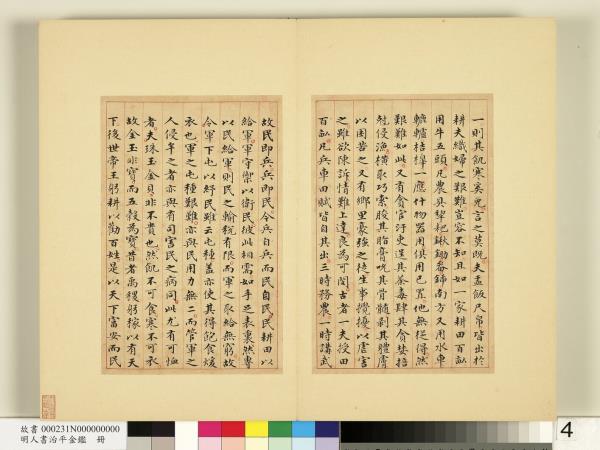 一則其飢寒奚允言之莫既夫盂飯尺帛皆出於
耕夫織婦之艱難豈容不知且如一家耕田百畝
用牛五頭凡農具犁耙鍬鋤番鍗南方又用水車
轆轤桔槔一應什物器用俱用己置他無從得然
艱難如此又有貪官汙吏逞其荼毒肆其貪婪掊
尅侵漁橫取巧索股其脂膏吮其骨髓剝其體膚
以困苦之又有鄉里豪強之徒生事攪擾以虐害
之雖欲陳訴情難上達良為可閔古者一夫授田
百畝凡兵車田賦皆自其出三時務農一時講武
故民即兵兵即民今兵自兵而民自民民耕田以
給軍軍守禦以衛民彼此相需如手足表裏然專
以民給軍則民之輸稅有限而軍之取給無窮故
令軍下屯以紓民難云屯種蓋亦使其得飽食煖
衣也軍之屯種艱難亦與民用力無二而管軍之
人侵牟之者亦與有司害民之病同此尤有可恤
者夫珠玉金貝非不貴也然飢不可食寒不可衣
故金玉非寶而五穀為寶昔者禹稷躬稼以有天
下後世帝王躬耕以勸百姓是以天下富安而民
故書 000231N000000000
明人書治平金鑑 冊
4